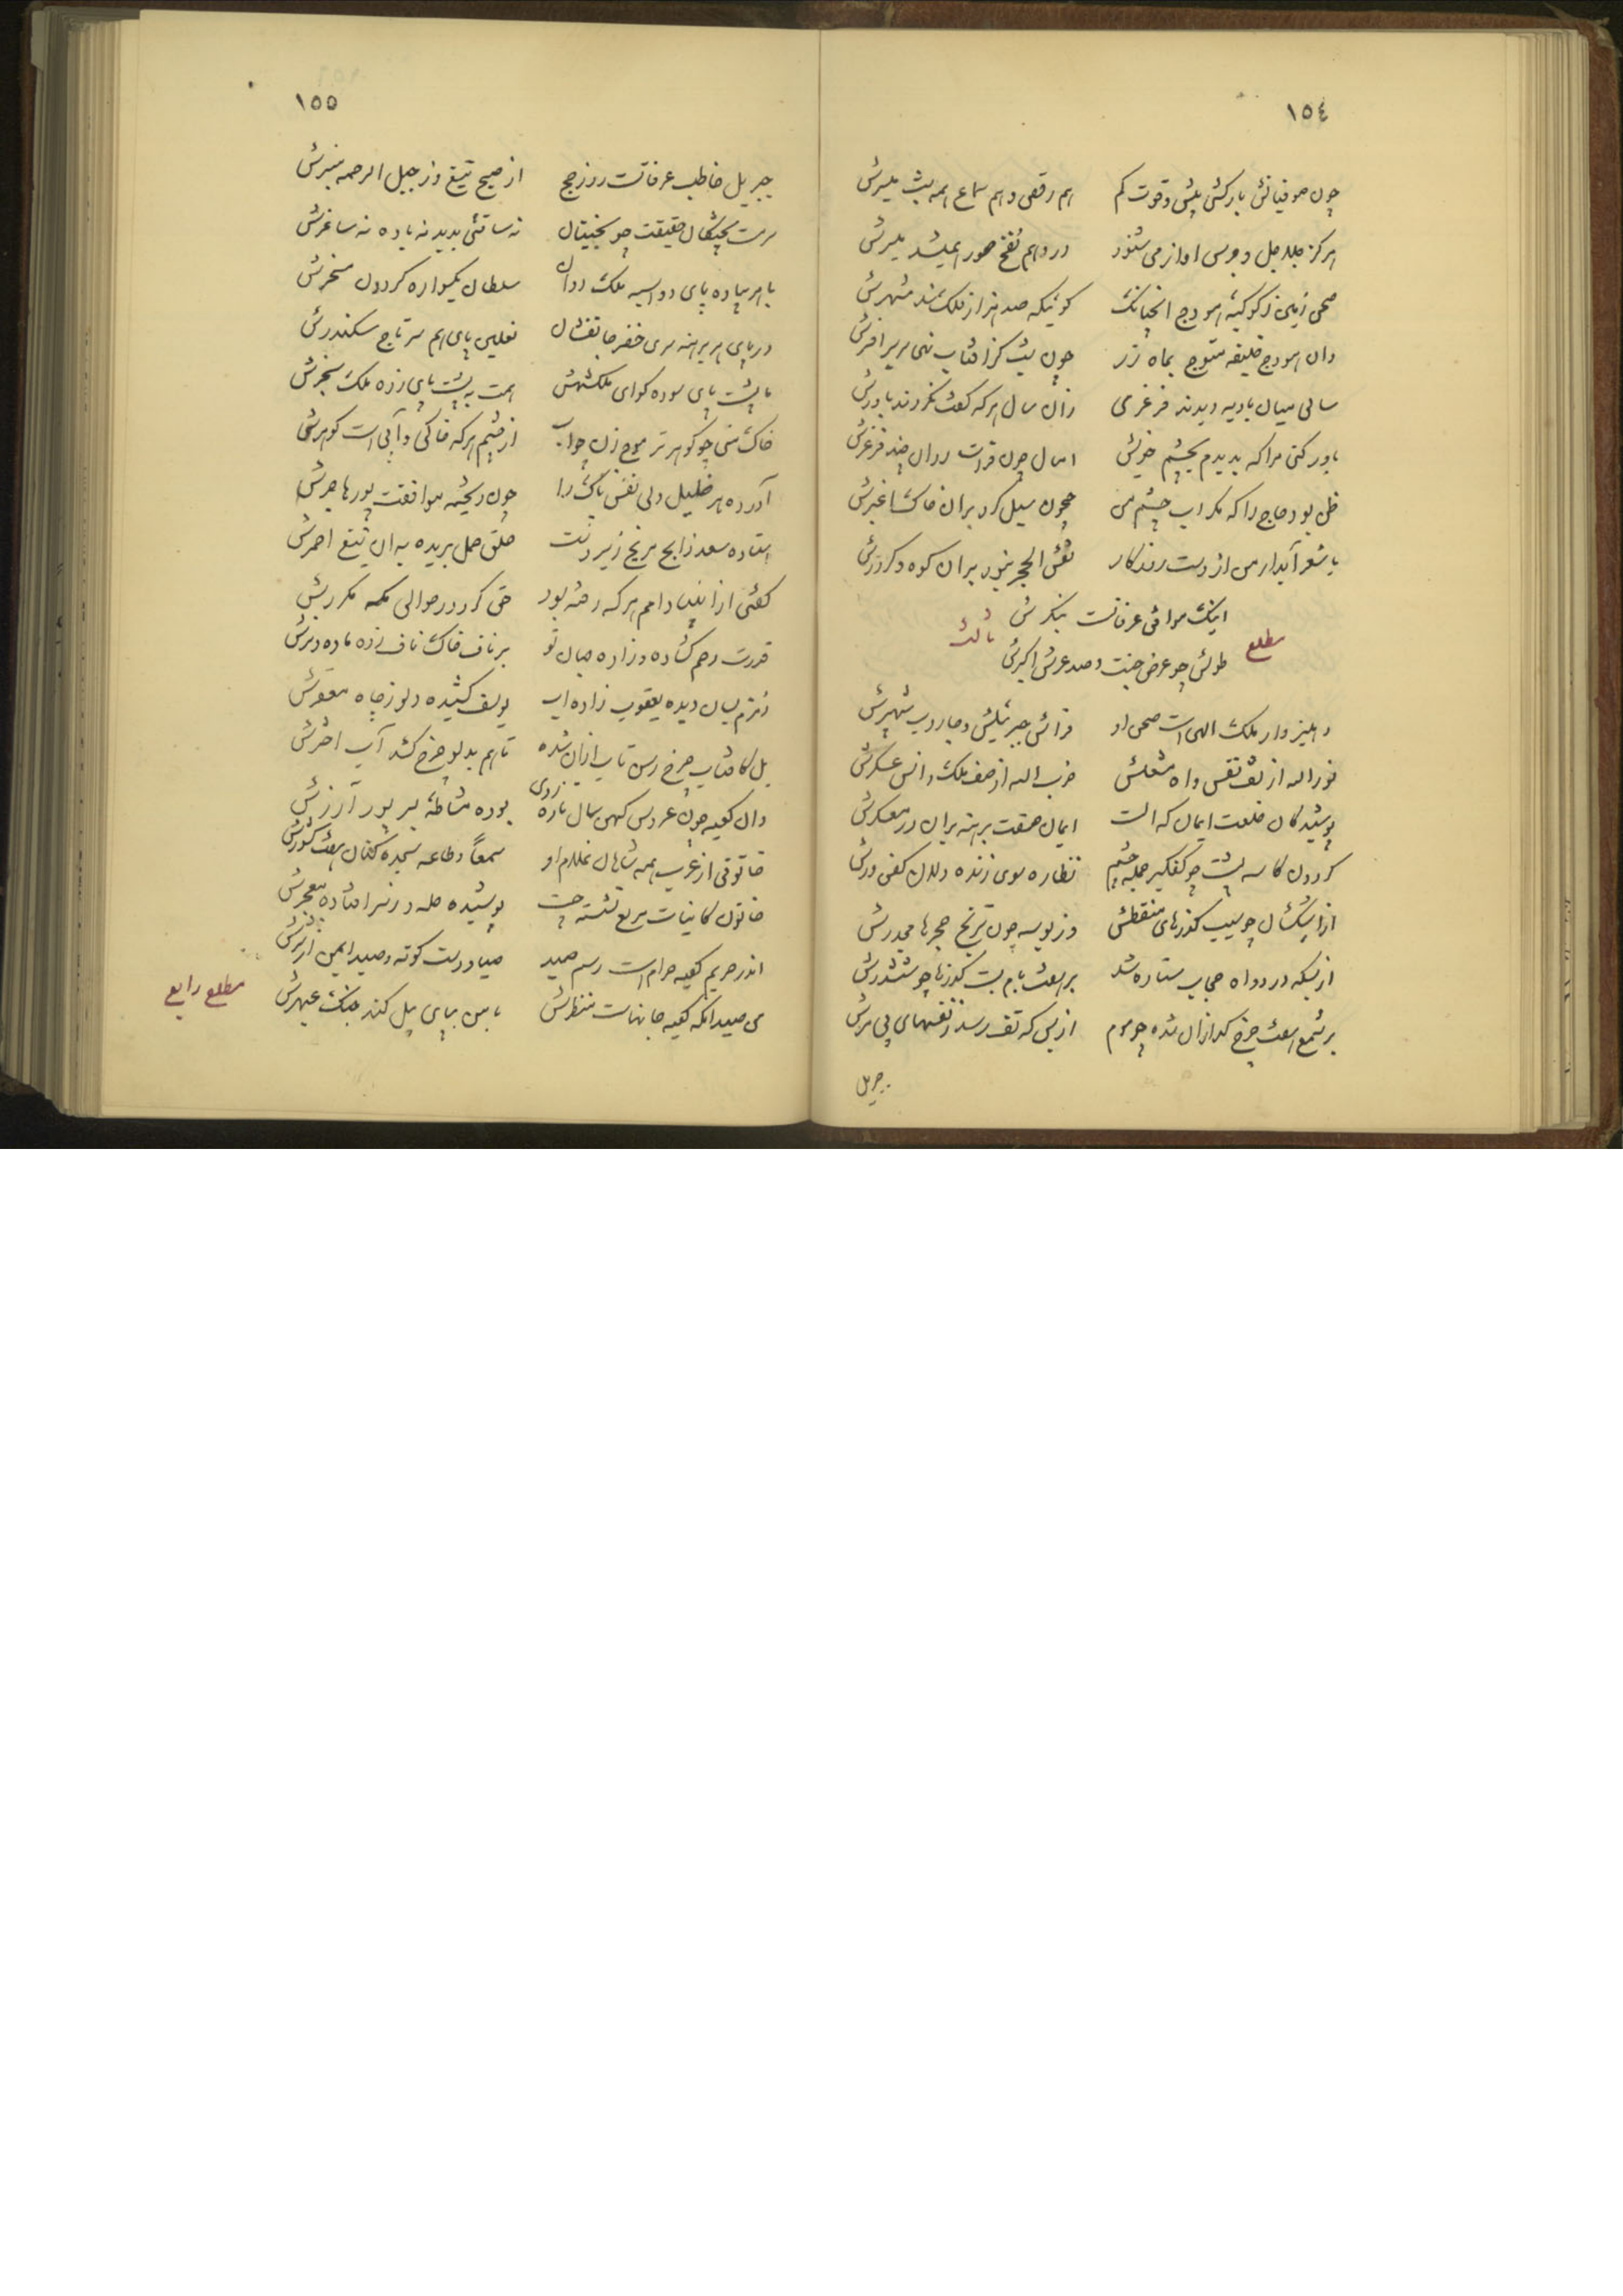 ١٥٤
چون صوفیانش بارکشی پیش و قوت کم
هم رقص و هم سماع همه بیشترش
هرکز جلاجل و جرس آواز می شنود
در وهم نفخ صور همی شد
وان هودج خلیفه متوج بماه زر
چون شب کز افتاب نهی بر سر افسرش
سالی میان بادیه دیدند فرغری
زان سال هرکه کفت نکردند باورش
باور کنی مرا که بدیدم بچشم خویش
امسال چون فرات روان چند فرغرش
ظن بود حاج را که مکر آب چشم من
سیل کرد بران خاک اغبرش
با شعر آبدار من از دست روزکار
نقش الحجر نمود بران کوه و کردرش
مطلع ثالث
اینک مواقف عرفاتست بنکرش
طولش چو عرض جنت و صد عرش اکبرش
دهلیز دار ملک الهی است صحن او
فراش جبرئیلش و جاروب شهپرش
نورالله از تف نفس و اه مشعلش
حزب الله از صف ملک و انس عسکرش
پوشیدکان خلعت ایمان که الست
ایمان صفت برهنه سران در معسکرش
کردون کاسه پشت چو کفکیر جمله چشم
نظاره سوی زنده دلان کفن ورش
از اشکشان چو سیب کذرهای منقطش
وز بوسه چون ترنج حجرها مجدرش
از بسکه دود اه حجاب ستاره شد
بر هفت بام بست کذرها چو ششدرش
بر شمع هفت چرخ کدازان شده چو موم
از بس که تف رسد ز نفسهای بی مرش
جبریل
١٥٥
جبریل خاطب عرفاتست روز حج
از صبح تیغ وز جبل الرحمه منبرش
سرمست بختیان حقیقت چو
نه ساقئی بدید نه باده نه ساغرش
با هر پیاده پای دواسپه ملک دوان
سلطان یکسواره کردون مسخرش
در پای هر برهنه سری خضر جانفشان
نعلین پای هم سر تاج سکندرش
ناپشت پای سوده کدای ملکشهش
همت به پشت پای زده ملک سنجرش
خاک منی چو کوهر تر موج زن جواب
از چشم هرکه خاکی و آبی است کوهرش
آورده هر خلیل دلی نفس پاک را
خون ریخته موافقت پور هاجرش
استاده سعد ذابح مریخ زیر دست
حلق حمل بریده بدان تیغ احمرش
کفتی از انبیا و امم هرکه رفته بود
حق کرد در حوالی مکه مکررش
قدرت رحم کشاده و زاده جهان نو
بر ناف خاک ناف زده ماده و نرش
زمزم بسان دیده یعقوب زاده آب
یوسف کشیده دلو ز چاه مقعرش
بل کافتاب چرخ رسن تاب ازان شده
تا هم بدلو چرخ کشد آب اخترش
وان کعبه چون عروس کهن سال تازه روی
بوده مشاطه بر پور آزرش
خاتونی از عرب همه شاهان غلام او
سمعاً و طاعه سجده کنان هفت کشورش
خاتون کاینات مربع نشسته چست
پوشیده حله و ز سر افتاده معجرش
اندر حریم کعبه حرام است رسم صید
صیاد دست کوته و صید ایمن از شرش
من صید انکه کعبه جانهاست منظرش
با من بپای پیل کند جنک عبهرش
مطلع رابع